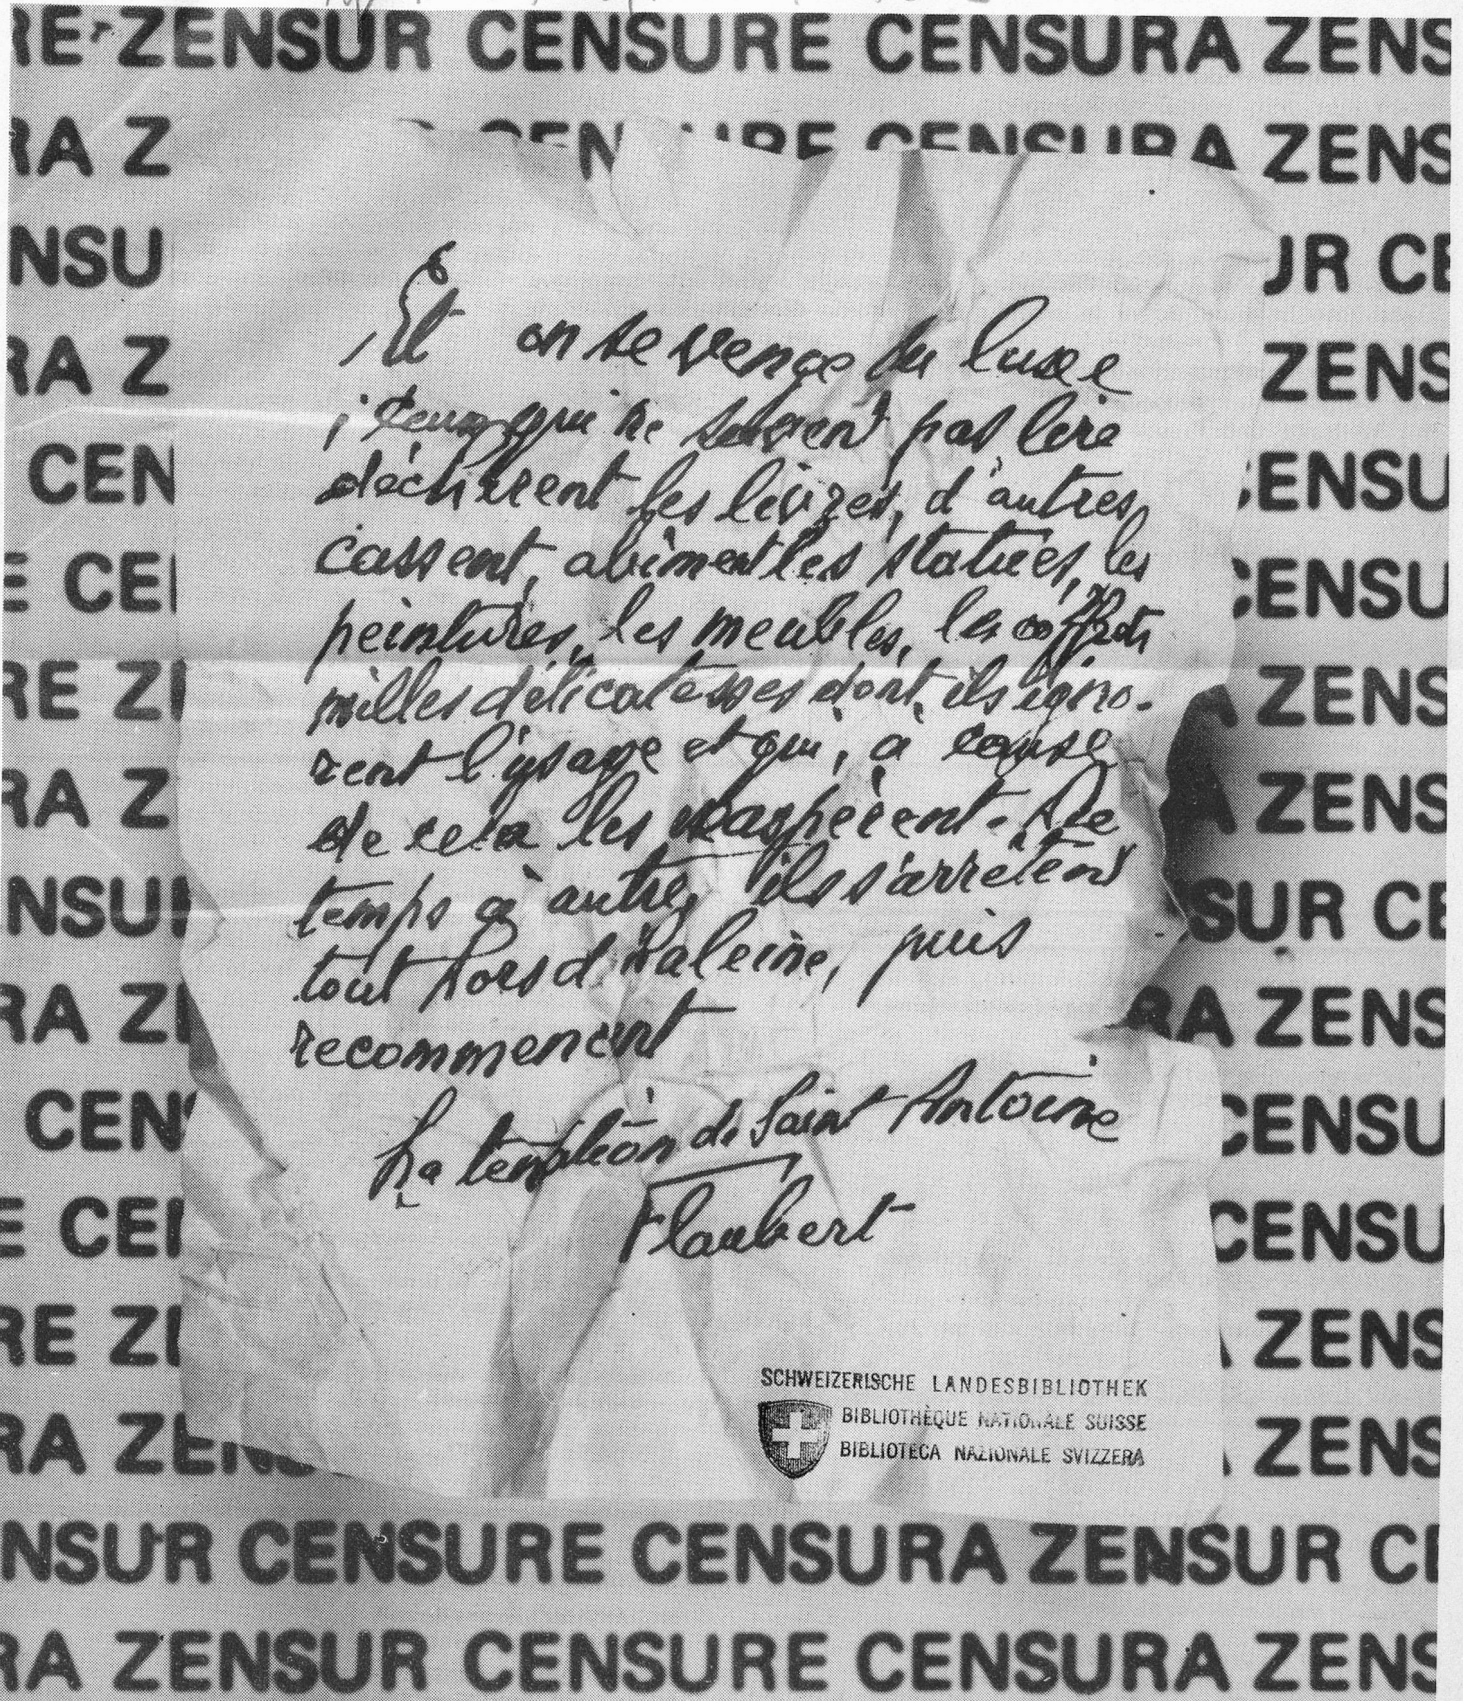 RE ZENSUR CENSURE CENSURA ZENS
RA Z CENSURE CENSURA ZENS
NSU UR CE
RA Z ZENS
CEN CENSU
E CE CENSU
RE Z ZENS
RA Z A ZENS
NSU SUR CE
RA Z RA ZENS
CEN CENSU
E CE CENSU
RE Z ZENS
RA ZENS ZENS
NSUR CENSURE CENSURA ZENSUR CE
RA ZENSUR CENSURE CENSURA ZENS
Et on se venge du luxe
; ceux qui ne savent pas lire
déchirent les livres, d'autres
cassent, abiment les statues, les
peintures, les meubles, les coffrets
milles délicatesses dont ils igno-
rent l'usage et qui, à cause
de cela les exaspèrent. De
temps à autre, ils s'arrêtent
tout hors d'haleine, puis
recommencent
La tentation de Saint Antoine
Flaubert
SCHWEIZERISCHE LANDESBIBLIOTHEK
BIBLIOTHÈQUE NATIONALE SUISSE
BIBLIOTECA NAZIONALE SVIZZERA